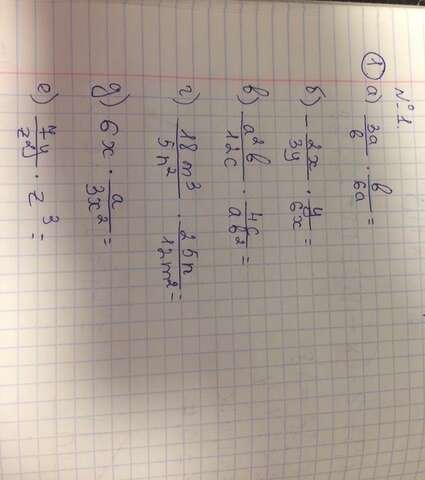 № 1.
① а) 3a/b · b/6a =
б) - 2x/3y · y/6x =
в) a²b/12c · 4c/ab² =
г) 18m³/5n² · 25n/12m² =
д) 6x · a/3x² =
е) 7y/z² · z³ =